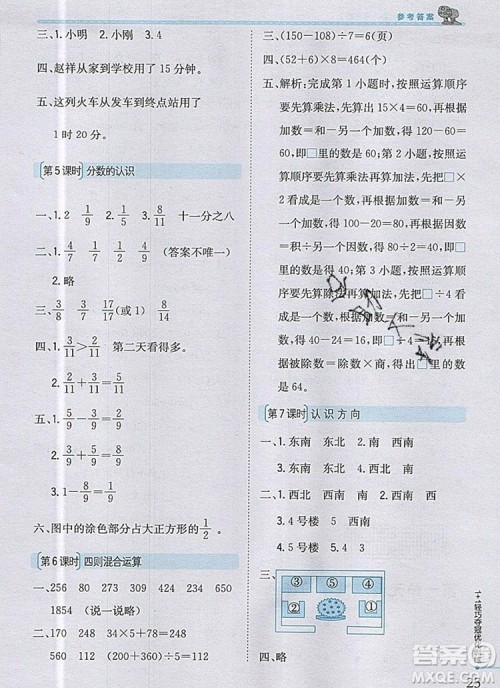 参考答案
三、1.小明 2.小刚 3.4
四、赵祥从家到学校用了 15 分钟。
五、这列火车从发车到终点站用了
1 时 20 分。
第5课时 分数的认识
一、1. 2 1/9 2. 5/8 3. 8/11 十一分之八
二、1. 4/7 1/7 1/9 (答案不唯一)
2.略
三、3/8 3/4 17/17(或 1) 8/9
四、1. 3/11>2/11 第二天看得多。
2. 3/11+2/11=5/11
五、1. 2/9+3/9=5/9
2. 1-8/9=1/9
六、图中的涂色部分占大正方形的 1/2 。
第6课时 四则混合运算
一、256 80 273 309 450 336
1854 (说一说略)
二、170 248 34×5=170 248
560 112 (34×5)÷5=112
三、(150-108)÷7=6(页)
四、(52+6)×8=464(个)
五、解析:完成第 1 小题时,按运算顺序
要先算乘法,先算出 15×4=60,再根据
加数=和-另一个加数,得 180-60=
120,出□里的数是 120;第 2 小题,按运
算顺序要先算乘法再算加法,先把□×
2 看成是一个数,再根据加数=和-另
一个加数,得 100-20=80,再根据因数
=积÷另一个因数,得 80÷2=40,即□
里的数是 40;第 3 小题,按运算顺序
要先算除法再算加法,先把□÷4
看成是一个数,根据加数=和-另一个
加数,得 40-24=16,根
据被除数=除数×商,得出□里的数
是 64。
第7课时 认识方向
一、1.东南 东北 2.南 西南
二、1.东北 西北 2.西南 南
3.4 号楼 4.东南
3.5 号楼 5.4 3
三、② ③ ⑤ ④ ①
四、略
1+1轻巧夺冠优化训练
23
答案圈